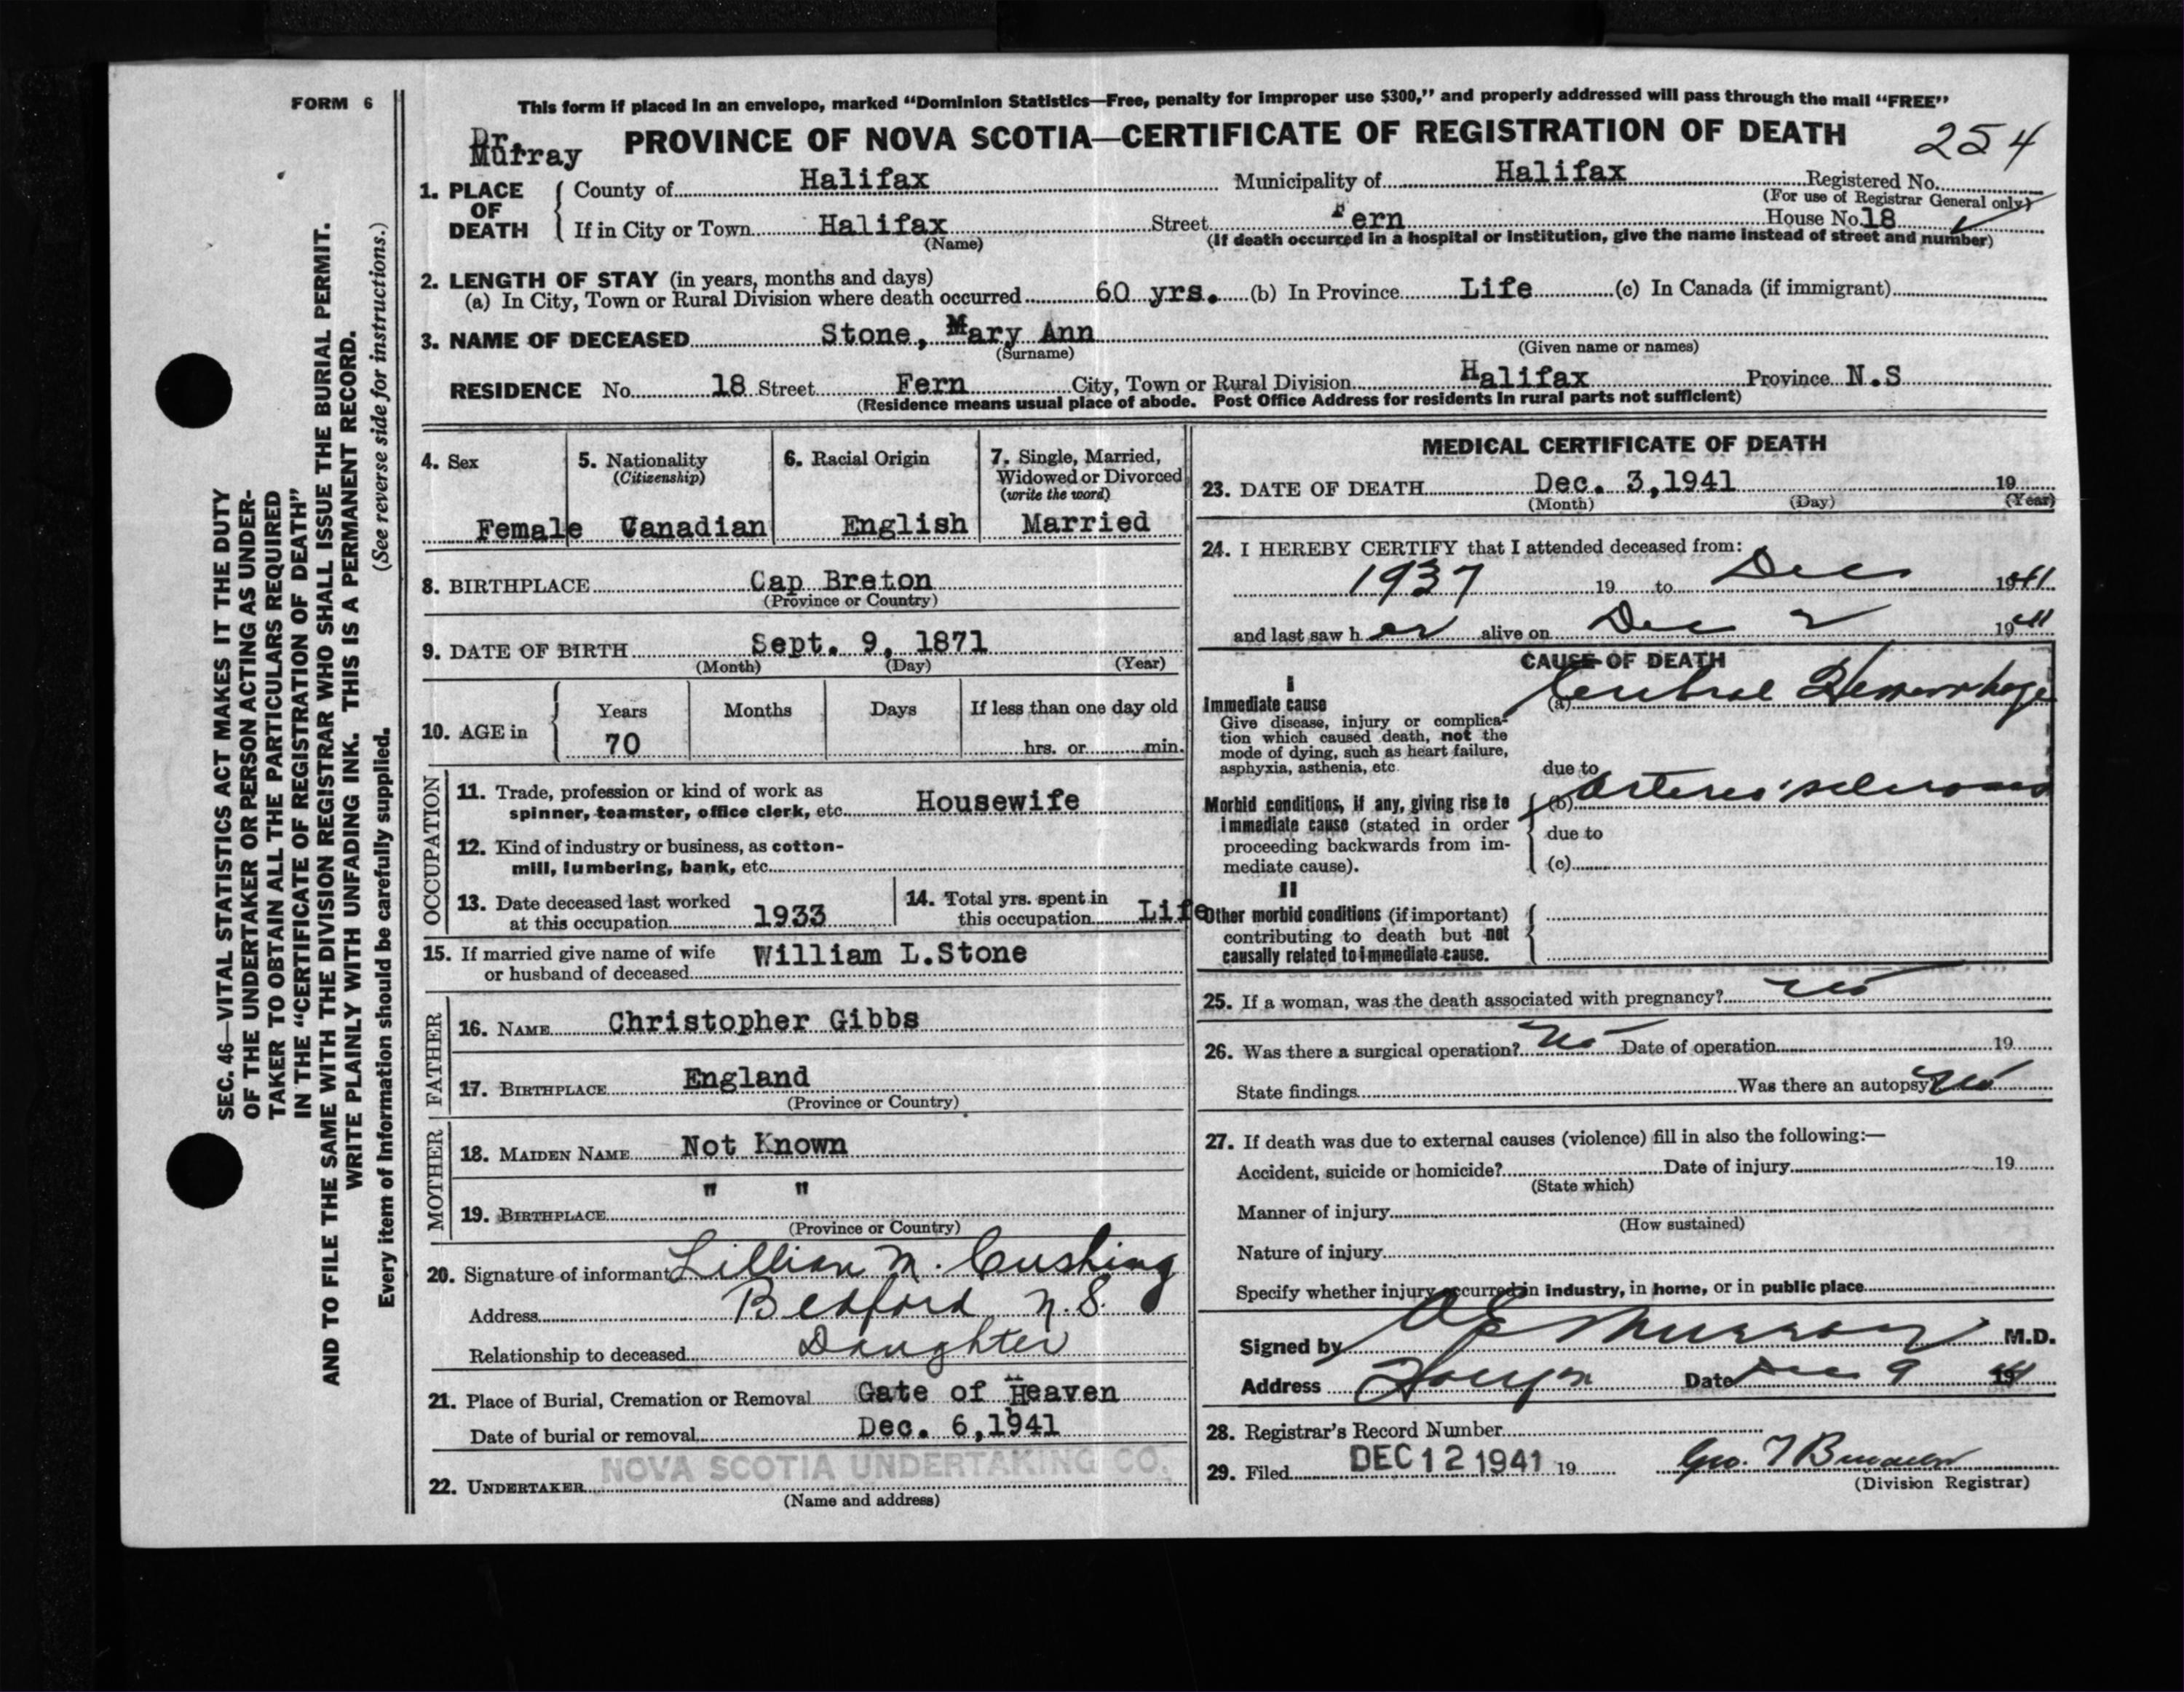 FORM 6
This form if placed in an envelope, marked "Dominion Statistics—Free, penalty for improper use $300," and properly addressed will pass through the mail "FREE"
Dr.
Murray
PROVINCE OF NOVA SCOTIA—CERTIFICATE OF REGISTRATION OF DEATH
254
1. PLACE OF DEATH
County of Halifax Municipality of Halifax Registered No.
(For use of Registrar General only)
If in City or Town Halifax Street Fern House No. 18
(Name) (If death occurred in a hospital or institution, give the name instead of street and number)
2. LENGTH OF STAY (in years, months and days)
(a) In City, Town or Rural Division where death occurred 60 yrs. (b) In Province Life (c) In Canada (if immigrant)
3. NAME OF DECEASED Stone, Mary Ann
(Surname) (Given name or names)
RESIDENCE No. 18 Street Fern City, Town or Rural Division Halifax Province N.S
(Residence means usual place of abode. Post Office Address for residents in rural parts not sufficient)
4. Sex
Female
5. Nationality
(Citizenship)
Canadian
6. Racial Origin
English
7. Single, Married,
Widowed or Divorced
(write the word)
Married
8. BIRTHPLACE Cap Breton
(Province or Country)
9. DATE OF BIRTH Sept. 9, 1871
(Month) (Day) (Year)
10. AGE in
Years Months Days If less than one day old
70 hrs. or min.
OCCUPATION
11. Trade, profession or kind of work as
spinner, teamster, office clerk, etc. Housewife
12. Kind of industry or business, as cotton-
mill, lumbering, bank, etc.
13. Date deceased last worked
at this occupation 1933
14. Total yrs. spent in
this occupation Life
15. If married give name of wife
or husband of deceased William L.Stone
FATHER
16. NAME Christopher Gibbs
17. BIRTHPLACE England
(Province or Country)
MOTHER
18. MAIDEN NAME Not Known
19. BIRTHPLACE " "
(Province or Country)
20. Signature of informant Lillian M. Cushing
Address Bedford N.S.
Relationship to deceased Daughter
21. Place of Burial, Cremation or Removal Gate of Heaven
Date of burial or removal Dec. 6,1941
NOVA SCOTIA UNDERTAKING CO.
22. UNDERTAKER
(Name and address)
MEDICAL CERTIFICATE OF DEATH
23. DATE OF DEATH Dec. 3,1941 19
(Month) (Day) (Year)
24. I HEREBY CERTIFY that I attended deceased from:
1937 19 to Dec 1941
and last saw her alive on Dec 2 1941
CAUSE OF DEATH
I
Immediate cause
Give disease, injury or complica-
tion which caused death, not the
mode of dying, such as heart failure,
asphyxia, asthenia, etc.
(a) Cerebral Hemorrhage
due to
Morbid conditions, if any, giving rise to
immediate cause (stated in order
proceeding backwards from im-
mediate cause).
(b) Arterio sclerosis
due to
(c)
II
Other morbid conditions (if important)
contributing to death but not
causally related to immediate cause.
25. If a woman, was the death associated with pregnancy? No
26. Was there a surgical operation? No Date of operation 19
State findings Was there an autopsy? No
27. If death was due to external causes (violence) fill in also the following:—
Accident, suicide or homicide? Date of injury 19
(State which)
Manner of injury
(How sustained)
Nature of injury
Specify whether injury occurred in industry, in home, or in public place
Signed by Murray M.D.
Address Date Dec 9 1941
28. Registrar's Record Number
29. Filed DEC 12 1941 19 Geo.
(Division Registrar)
SEC. 46—VITAL STATISTICS ACT MAKES IT THE DUTY
OF THE UNDERTAKER OR PERSON ACTING AS UNDER-
TAKER TO OBTAIN ALL THE PARTICULARS REQUIRED
IN THE "CERTIFICATE OF REGISTRATION OF DEATH"
AND TO FILE THE SAME WITH THE DIVISION REGISTRAR WHO SHALL ISSUE THE BURIAL PERMIT.
WRITE PLAINLY WITH UNFADING INK. THIS IS A PERMANENT RECORD.
Every item of information should be carefully supplied. (See reverse side for instructions.)